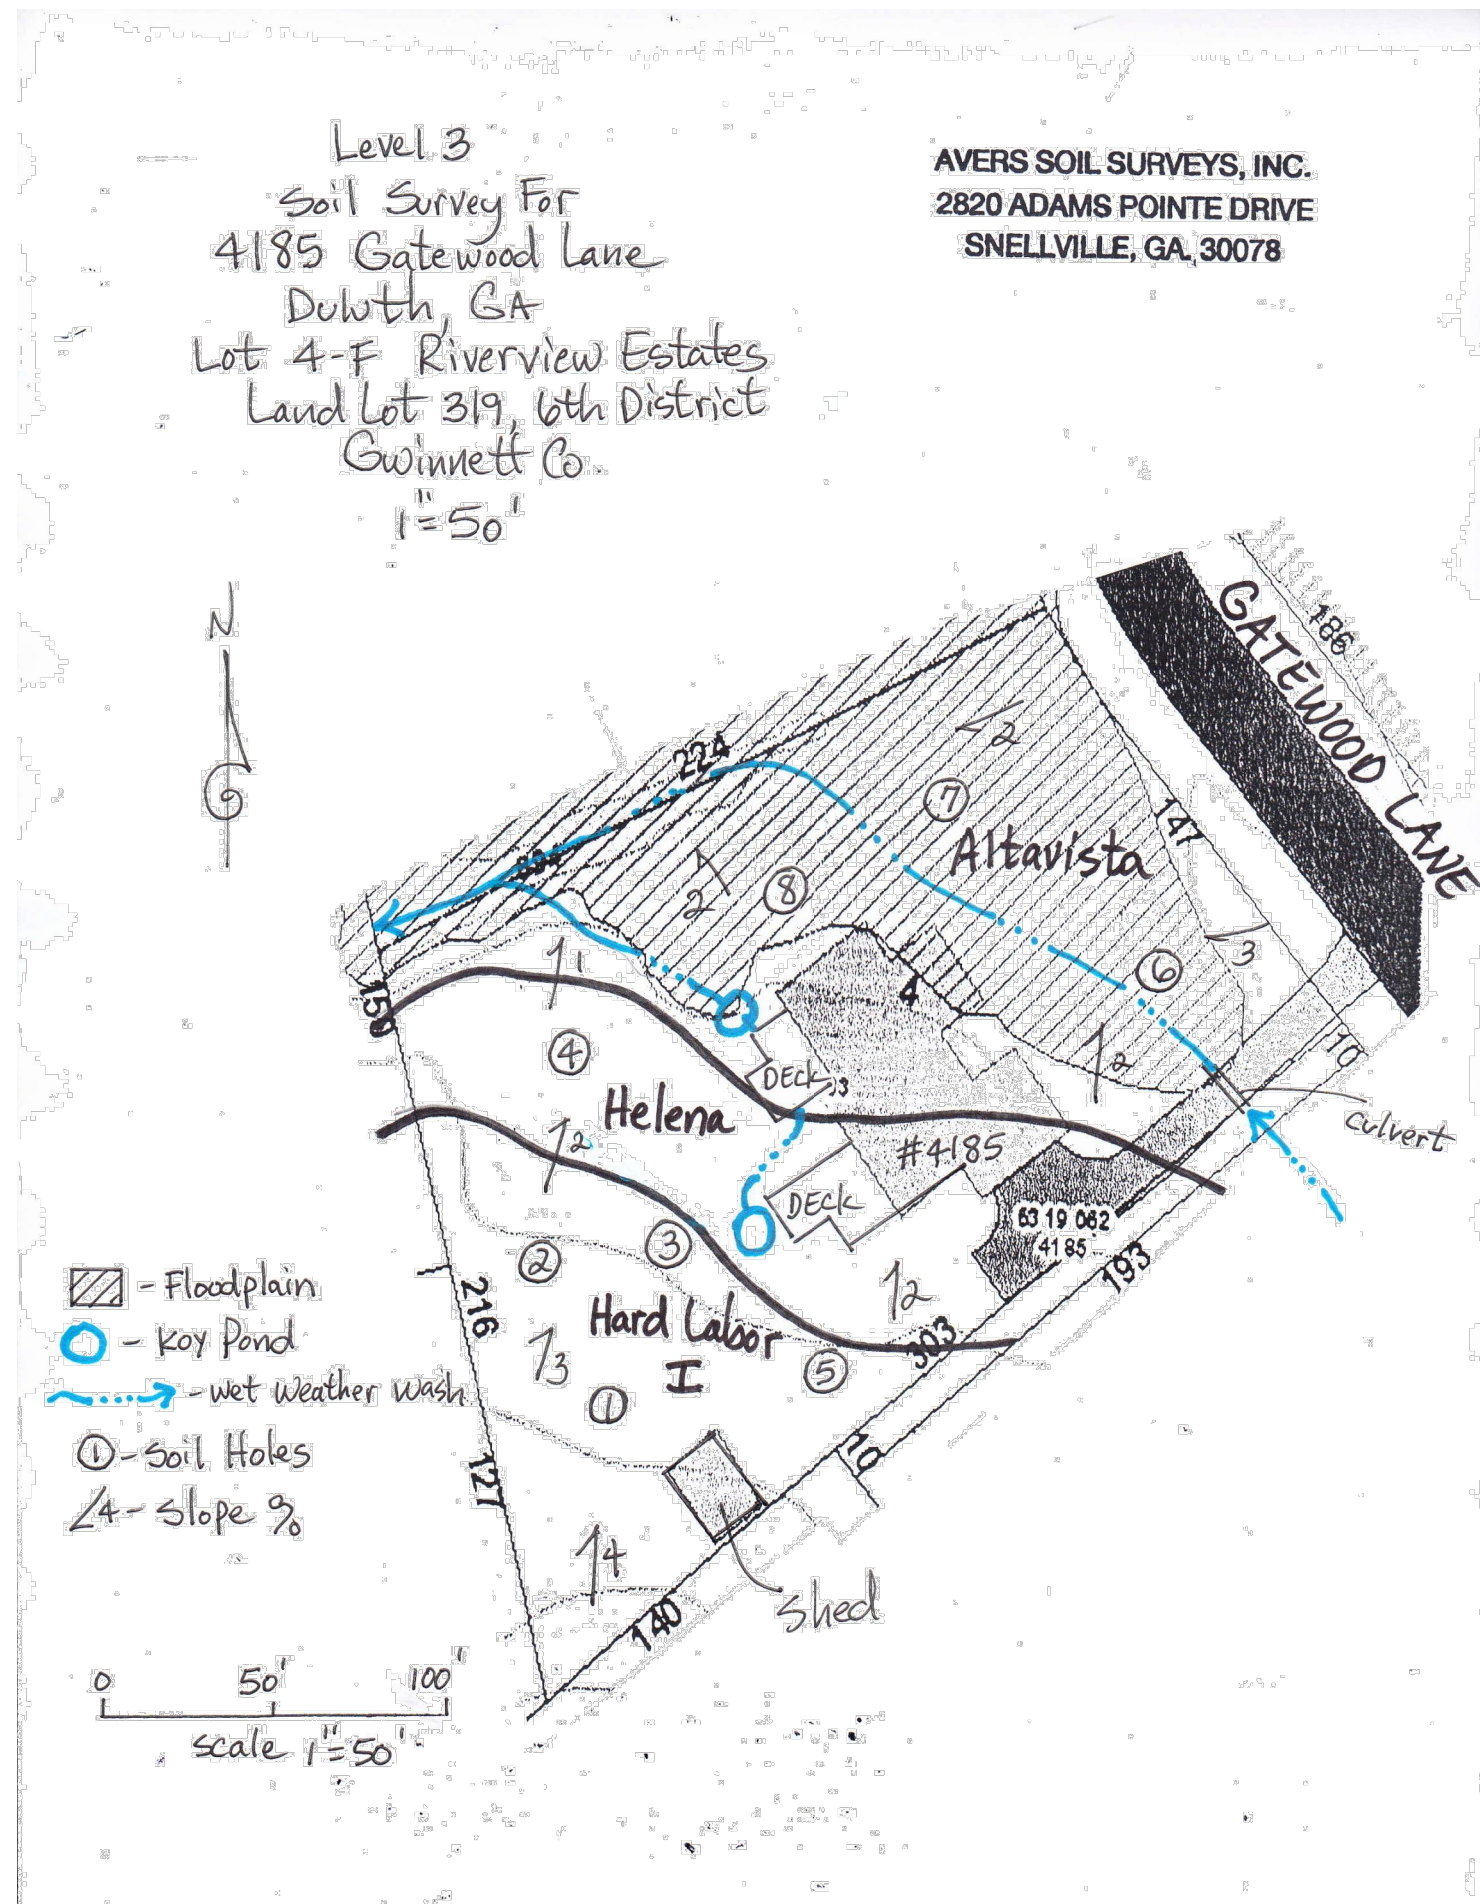 Level 3
Soil Survey For
4185 Gatewood Lane
Duluth, GA
Lot 4-F Riverview Estates
Land Lot 319, 6th District
Gwinnett Co.
1"=50'
AVERS SOIL SURVEYS, INC.
2820 ADAMS POINTE DRIVE
SNELLVILLE, GA. 30078
N
186
GATEWOOD LANE
224
2
7
147
Altavista
2
8
3
6
1
4
150
10
2
4
DECK
3
Helena
culvert
2
#4185
DECK
63 19 062
4185
193
2
3
2
216
Hard Labor
I
303
3
5
1
10
127
4
Shed
140
- Floodplain
- Koy Pond
- Wet Weather Wash
1 - Soil Holes
4 - Slope %
0 50' 100'
scale 1"=50'